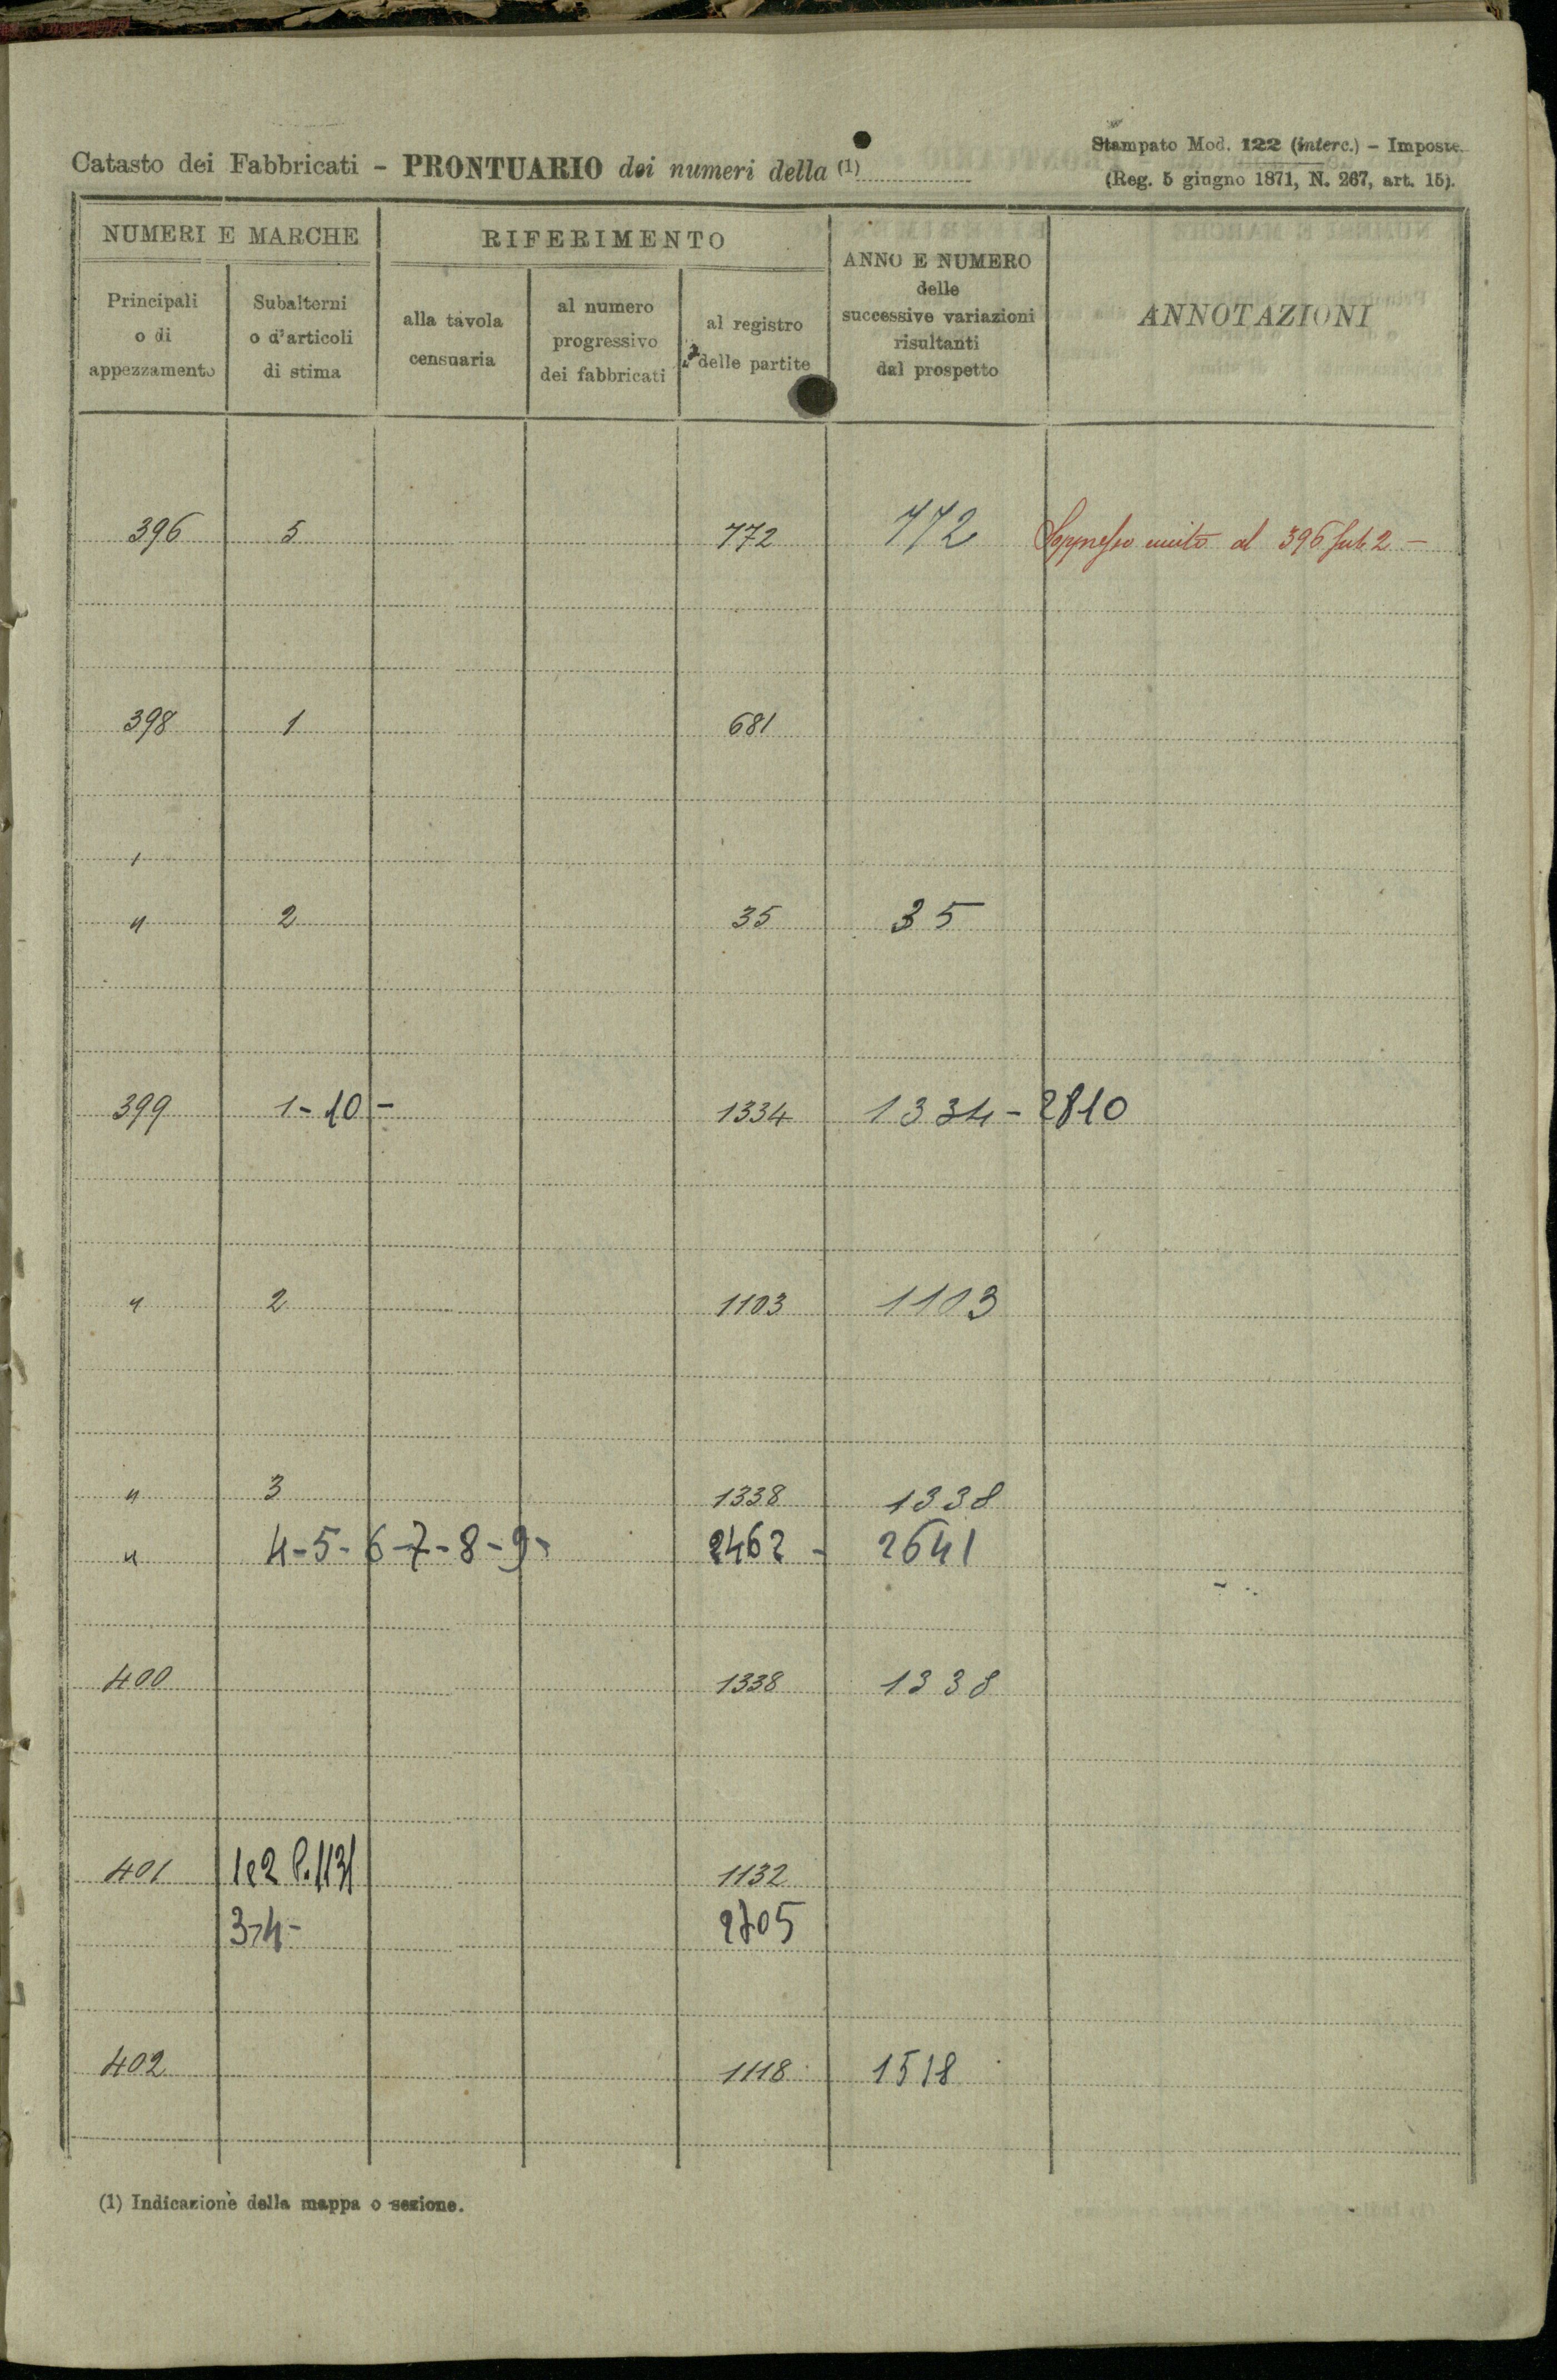 Catasto dei Fabbricati - PRONTUARIO dei numeri della (1)
Stampato Mod. 122 (interc.) - Imposte.
(Reg. 5 giugno 1871, N. 267, art. 15).
NUMERI E MARCHE
RIFERIMENTO
ANNO E NUMERO
delle
successive variazioni
risultanti
dal prospetto
ANNOTAZIONI
Principali
o di
appezzamento
Subalterni
o d'articoli
di stima
alla tavola
censuaria
al numero
progressivo
dei fabbricati
al registro
delle partite
396 5 772 772 Soppresso unito al 396 sub 2 -
398 1 681
" 2 35 35
399 1-10- 1334 1334-2810
" 2 1103 1103
" 3 1338 1338
" 4-5-6-7-8-9- 2462 - 2641
400 1338 1338
401 1e2 P. 1131 1132
3-4- 2705
402 1118 1518
(1) Indicazione della mappa o sezione.